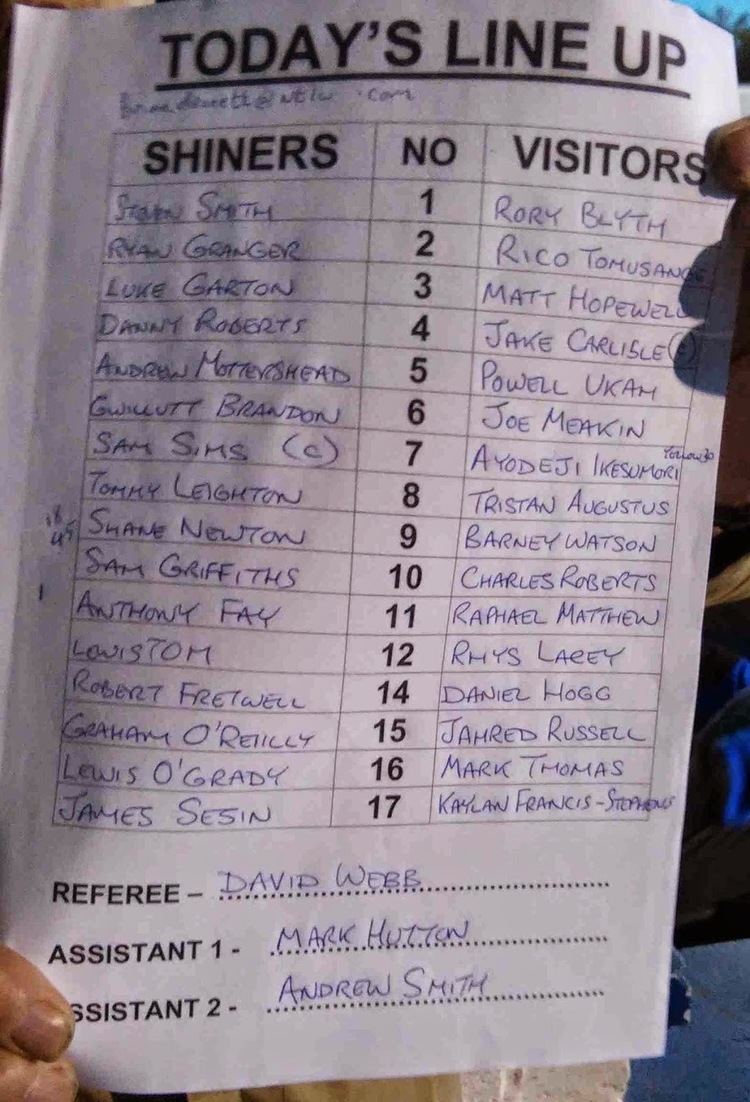 TODAY'S LINE UP
.com
SHINERS NO VISITORS
SMITH 1 RORY BLYTH
RYAN GRANGER 2 RICO TOMUSANGE
LUKE GARTON 3 MATT HOPEWELL
DANNY ROBERTS 4 JAKE CARLISLE (C)
ANDREW MOTTERSHEAD 5 POWELL UKAH
GWILLUTT BRANDON 6 JOE MEAKIN
SAM SIMS (C) 7 AYODEJI IKESUMORI
TOMMY LEIGHTON 8 TRISTAN AUGUSTUS
SHANE NEWTON 9 BARNEY WATSON
SAM GRIFFITHS 10 CHARLES ROBERTS
ANTHONY FAY 11 RAPHAEL MATTHEW
LOUIS TOM 12 RHYS LACEY
ROBERT FRETWELL 14 DANIEL HOGG
GRAHAM O'REIILLY 15 JAHRED RUSSELL
LEWIS O'GRADY 16 MARK THOMAS
JAMES SESIN 17 KAYLAN FRANCIS-STEPHENS
REFEREE – DAVID WEBB
ASSISTANT 1 - MARK HUTTON
SSISTANT 2 - ANDREW SMITH